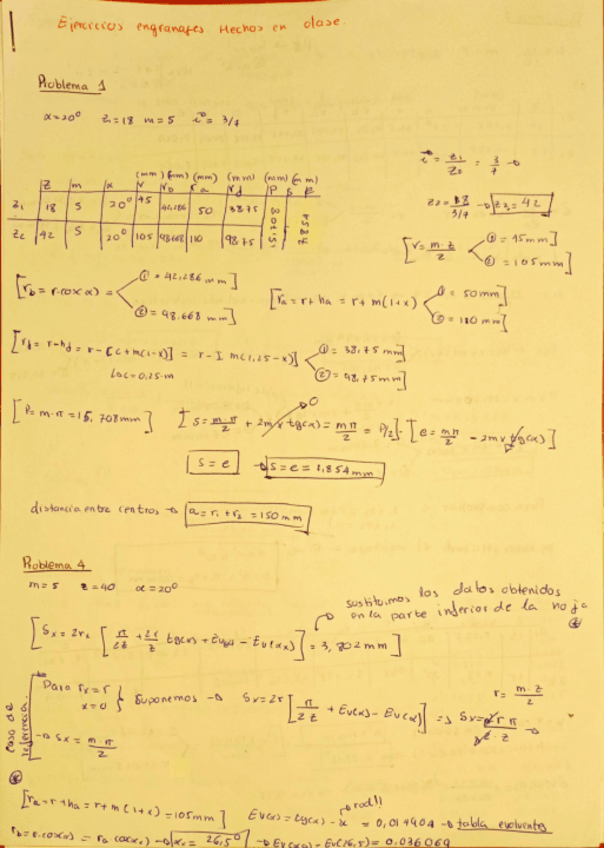 Ejercicios engranajes Hechos en clase.
Problema 1
α=20° z₁=18 m=5 i= 3/7
i = z₁/z₂ = 3/7
z₂ = 18/(3/7) → z₂ = 42
(mm) (mm) (mm) (mm) (mm) (mm)
z m α r rb ra rd p s e
z₁ 18 5 20° 45 42,286 50 38'75
z₂ 42 5 20° 105 98'668 110 98'75
[r = m·z/2 ① = 45mm]
② = 105mm]
[rb = r·cos α) = ① = 42,286 mm]
② = 98,668 mm]
[ra = r + ha = r + m(1+x) ① = 50mm]
② = 110 mm]
[rd = r-hd = r - [c+m(1-x)] = r - [m(1,25-x)] ① = 38,75 mm]
② = 98,75mm]
↳c=0,25·m
[P= m·π = 15,708mm] [s = m·π/2 + 2m x tg(α) = mπ/2 = P/2] - [e = mπ/2 - 2m x tg(α)]
0
s = e → s = e = 7,854mm
distancia entre centros → a = r₁ + r₂ = 150 mm
Problema 4
m=5 z=40 α=20°
sustituimos los datos obtenidos
en la parte inferior de la hoja
[Sx = 2rx [π/2z + 2x/z tg(α) + Ev(α) - Ev(αx)] = 3,802mm]
Caso de referencia.
Para rx=r
x=0 } Suponemos → Sx=2r [π/2z + Ev(α) - Ev(α)] => Sx = 2rπ/2·z →
r = m·z/2
→ Sx = m·π/2
[ra = r + ha = r + m(1+x) = 105mm] Ev(α) = tg(α) - α = 0,014904 → tabla evolvente
rad!!
rb = r·cos(α) = ra cos(αx) → αx = 26,5° → Ev(αx) = Ev(26,5) = 0,036069